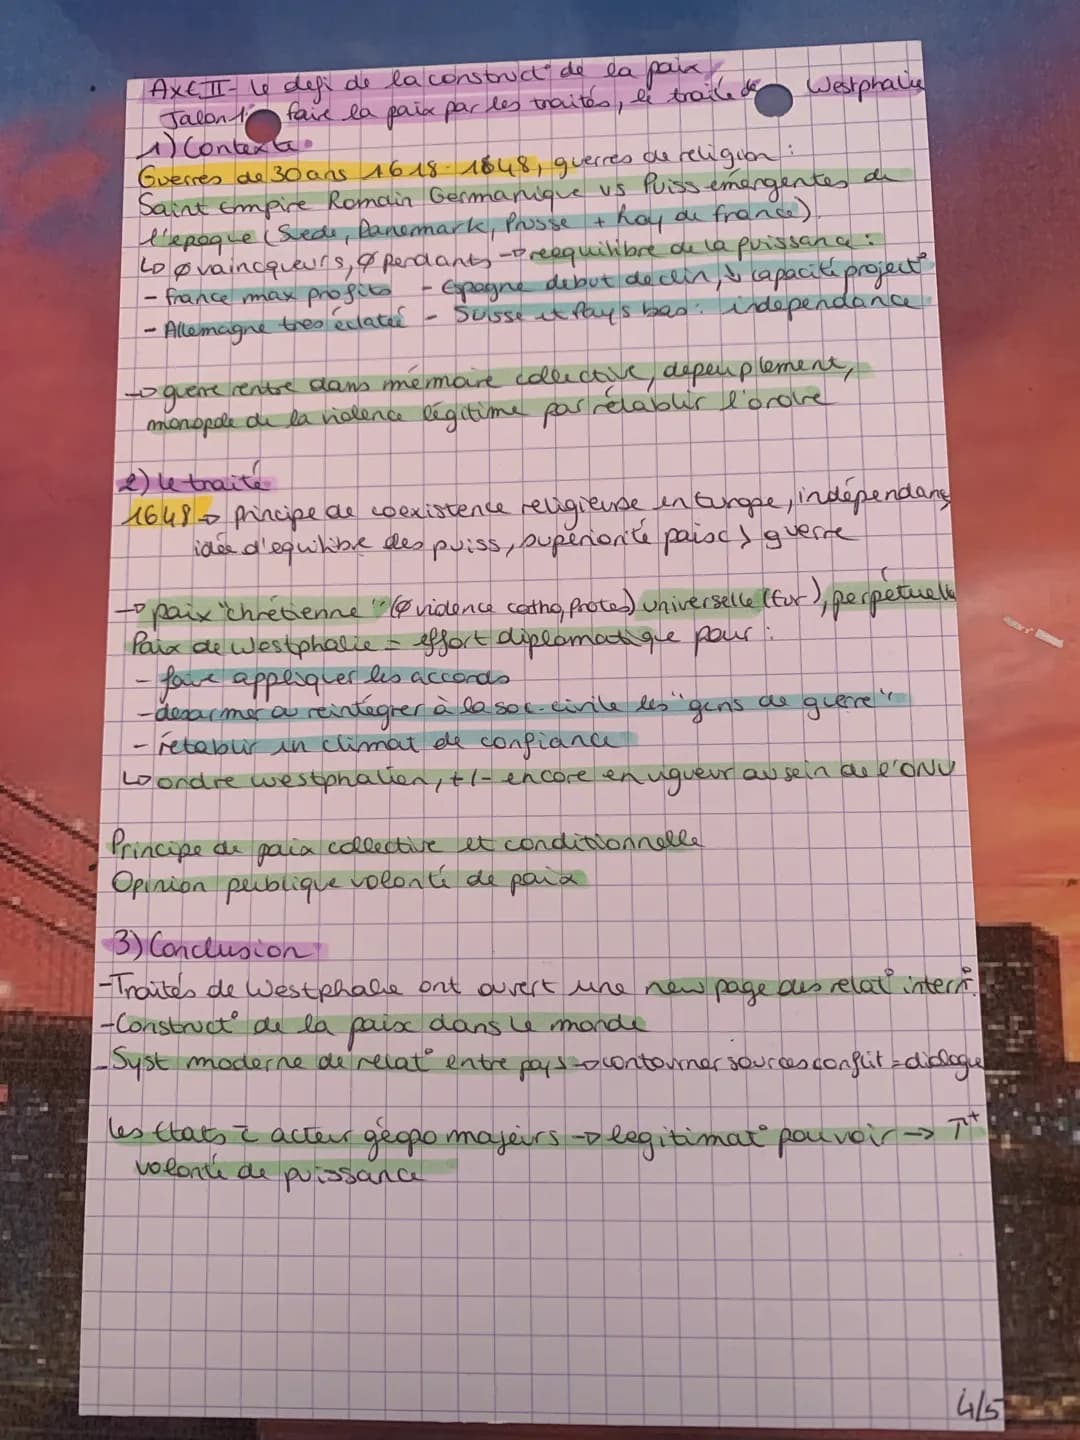 AXE II - le defi de la construct° de la paix
Jalon 1: faire la paix par les traités, le traité de Westphalie
1) Contexte
Guerres de 30 ans 1618-1648, guerres de religion :
Saint Empire Romain Germanique vs Puiss émergentes de
l'epoque (Suede, Danemark, Prusse + Roy de france).
↳ ∅ vaincqueurs, ∅ perdants → reequilibre de la puissance :
- france max profits - Espagne debut declin, ↓ capacité project°
- Allemagne tres éclatée - Suisse et Pays bas : independance
→ guerre rentre dans mémoire collective, depeuplement,
monopole de la violence légitime par rétablir l'ordre
2) le traité
1648 → principe de coexistence religieuse en Europe, indépendance
idée d'equilibre des puiss, supériorité paix > guerre
→ paix "chrétienne" (∅ vidence catho, Protes) universelle (Eur), perpétuelle
Paix de Westphalie = effort diplomatique pour :
- faire appliquer les accords
- desarmer ou reintégrer à la soc. civile les "gens de guerre"
- retablir un climat de confiance
↳ ordre westphalien, +/- encore en vigueur au sein de l'ONU
Principe de paix collective et conditionnelle
Opinion publique volonté de paix
3) Conclusion
- Traités de Westphalie ont ouvert une new page des relat° intern°.
- Construct° de la paix dans le monde
- Syst moderne de relat° entre pays → contourner sources conflit = dialogue
les Etats = acteur géopo majeurs → legitimat° pouvoir → T+
volonté de puissance
4/5